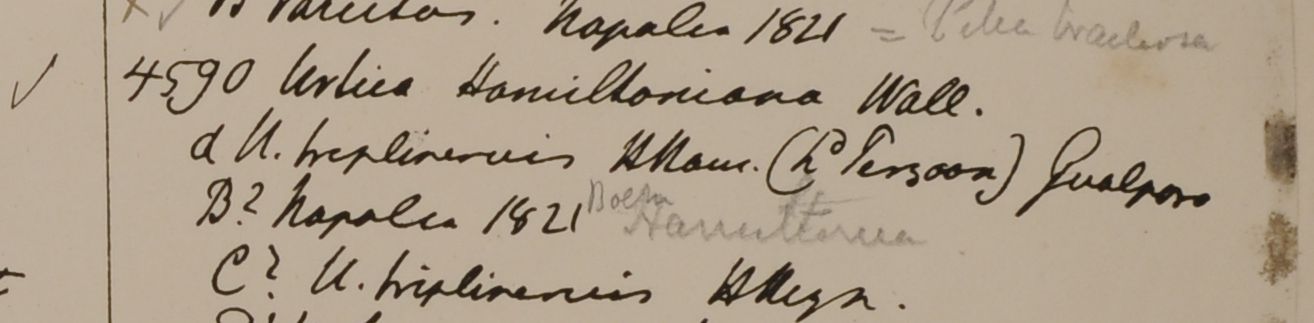 B Napalea 1821 = Pilea
4590 Urtica Hamiltoniana Wall.
a U. triplinervis HHam. (h Persoon) Gualpara
B? Napalea 1821 Boehm Hamiltonia
C? U. triplinervis H